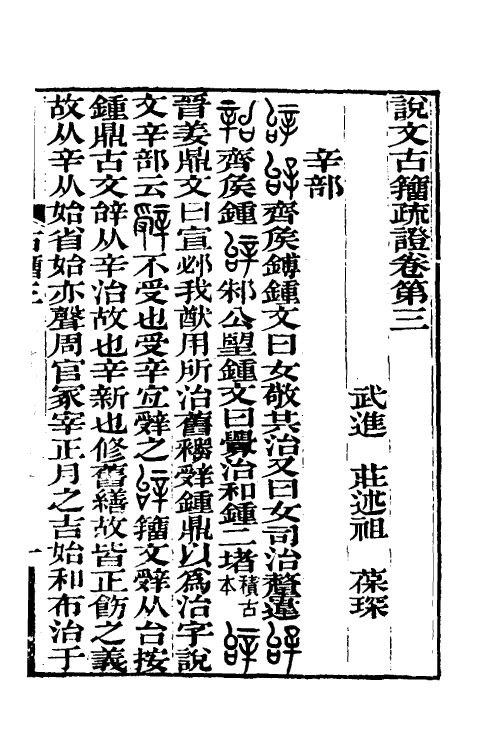 說文古籀疏證卷第三
武進 莊述祖 葆琛
辛部
齊侯鎛鍾文曰女敬共治又曰女司治釐邍
齊侯鍾 邾公望鍾文曰鑄治和鍾二堵積古本
晉姜鼎文曰宣邲我猷用所治舊稱辤鍾鼎以爲治字說
文辛部云辤不受也受辛宜辤之 籀文辤从台按
鍾鼎古文辝从辛治故也辛新也修舊繕故皆正飭之義
故从辛从始省始亦聲周官冢宰正月之吉始和布治于
古籀三
一